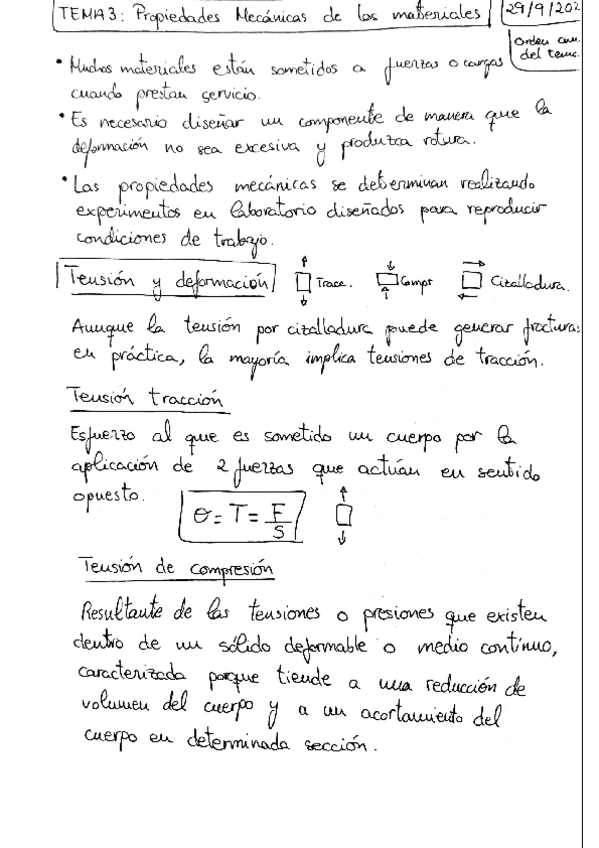 TEMA 3: Propiedades Mecánicas de los materiales 29/9/202
Orden
del tema.
• Muchos materiales están sometidos a fuerzas o cargas
cuando prestan servicio.
• Es necesario diseñar un componente de manera que la
deformación no sea excesiva y produzca rotura.
• Las propiedades mecánicas se determinan realizando
experimentos en laboratorio diseñados para reproducir
condiciones de trabajo.
Tensión y deformación Tracc. Compr Cizalladura.
Aunque la tensión por cizalladura puede generar fracturas
en práctica, la mayoría implica tensiones de tracción.
Tensión tracción
Esfuerzo al que es sometido un cuerpo por la
aplicación de 2 fuerzas que actúan en sentido
opuesto.
σ = T = F/S
Tensión de compresión
Resultante de las tensiones o presiones que existen
dentro de un sólido deformable o medio continuo,
caracterizada porque tiende a una reducción de
volumen del cuerpo y a un acortamiento del
cuerpo en determinada sección.